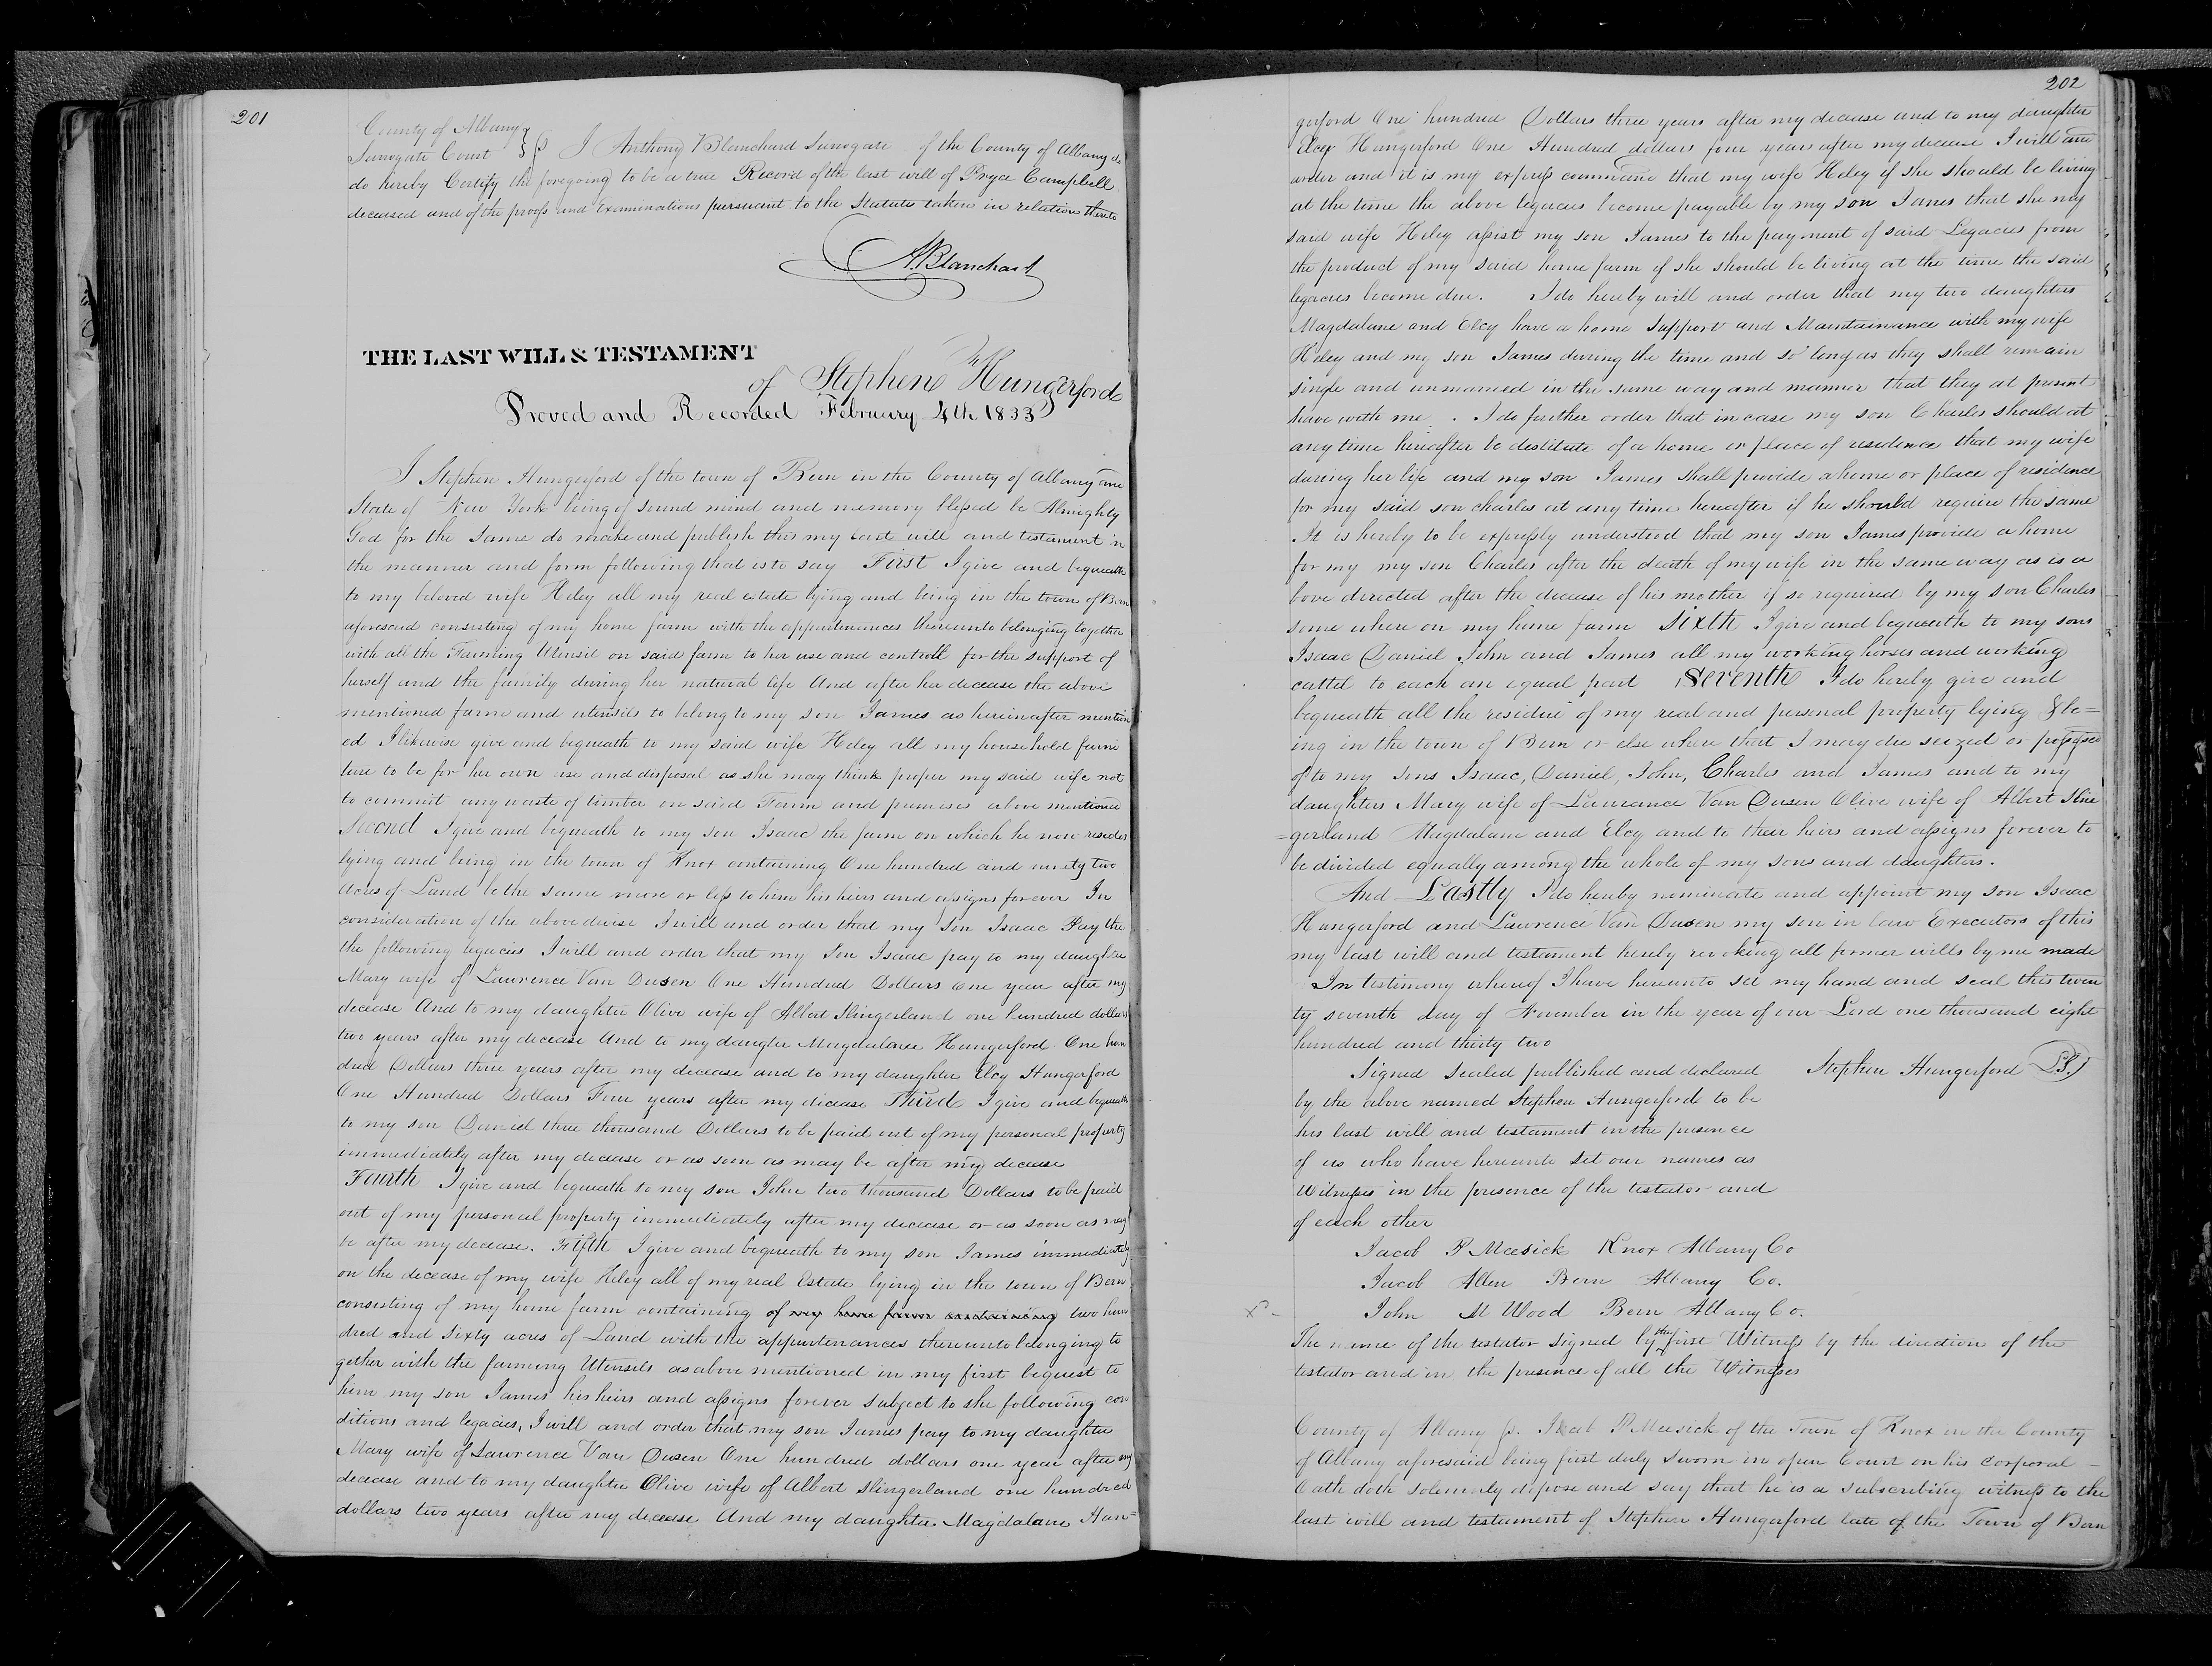 201
County of Albany }
Surrogate Court } ss I Anthony Blanchard Surrogate of the County of Albany do
do hereby Certify the foregoing to be a true Record of the last will of Pryce Campbell
deceased and of the proofs and Examinations pursuant to the Statute taken in relation thereto
A. Blanchard
THE LAST WILL & TESTAMENT
of Stephen Hungerford
Proved and Recorded February 4th 1833
I Stephen Hungerford of the town of Bern in the County of Albany and
State of New York being of sound mind and memory blessed be Almighty
God for the Same do make and publish this my last will and testament in
the manner and form following that is to say First I give and bequeath
to my beloved wife Heley all my real estate lying and being in the town of Bern
aforesaid consisting of my home farm with the appurtenances thereunto belonging together
with all the Farming Utensil on said farm to her use and controll for the support of
herself and the family during her natural life And after her decease the above
mentioned farm and utensils to belong to my son James as hereinafter mention
ed I likewise give and bequeath to my said wife Heley all my household furni
ture to be for her own use and disposal as she may think proper my said wife not
to commit any waste of timber on said Farm and premises above mentioned
Second I give and bequeath to my son Isaac the farm on which he now resides
lying and being in the town of Knox containing One hundred and ninety two
acres of Land be the same more or less to him his heirs and assigns forever In
consideration of the above devise I will and order that my Son Isaac Pay the
the following legacies I will and order that my Son Isaac pay to my daughter
Mary wife of Lawrence Van Dusen One Hundred Dollars One year after my
decease And to my daughter Olive wife of Albert Slingerland one hundred dollars
two years after my decease And to my daugter Magdalane Hungerford One hun
dred Dollars three years after my decease and to my daughter Elcy Hungerford
One Hundred Dollars Four years after my decease Third I give and bequeath
to my son Daniel three thousand Dollars to be paid out of my personal property
immediately after my decease or as soon as may be after my decease
Fourth I give and bequeath to my son John two thousand Dollars to be paid
out of my personal property immediately after my decease or as soon as may
be after my decease. Fifth I give and bequeath to my son James immediately
on the decease of my wife Heley all of my real Estate lying in the town of Bern
consisting of my home farm containing of my home farm containing two hun
dred and Sixty acres of Land with the appurtenances thereunto belonging to
gether with the farming Utensils as above mentioned in my first bequest to
him my son James his heirs and assigns forever subject to the following con
ditions and legacies, I will and order that my son James pay to my daughter
Mary wife of Lawrence Van Dusen One hundred dollars one year after my
decease and to my daughter Olive wife of Albert Slingerland one hundred
dollars two years after my decease And my daughter Magdalane Hun=
202
gerford One hundred Dollars three years after my decease and to my daughter
Elcy Hungerford One Hundred dollars four years after my decease I will and
order and it is my express command that my wife Heley if she should be living
at the time the above legacies become payable by my son James that she my
said wife Heley assist my son James to the payment of said Legacies from
the product of my said home farm if she should be living at the time the said
legacies become due. I do hereby will and order that my two daughters
Magdalane and Elcy have a home Support and Maintainance with my wife
Heley and my son James during the time and so long as they shall remain
single and unmarried in the same way and manner that they at present
have with me. I do further order that in case my son Charles should at
any time hereafter be destitute of a home or place of residence that my wife
during her life and my son James shall provide a home or place of residence
for my said son Charles at any time hereafter if he should require the same
It is hereby to be expressly understood that my son James provide a home
for my my son Charles after the death of my wife in the same way as is a
bove directed after the decease of his mother if so required by my son Charles
some where on my home farm Sixth I give and bequeath to my sons
Isaac Daniel John and James all my working horses and working
cattel to each an equal part Seventh I do hereby give and
bequeath all the residue of my real and personal property lying & be=
ing in the town of Bern or else where that I may die seized or possessed
of to my Sons Isaac, Daniel, John, Charles and James and to my
daughters Mary wife of Lawrance Van Dusen Olive wife of Albert Slin
=gerland Magdalane and Elcy and to their heirs and assigns forever to
be divided equally among the whole of my sons and daughters.
And Lastly I do hereby nominate and appoint my son Isaac
Hungerford and Lawrence Van Dusen my son in law Executors of this
my last will and testament hereby revoking all former wills by me made
In testimony whereof I have hereunto set my hand and seal this twen
ty seventh day of November in the year of our Lord one thousand eight
hundred and thirty two
Signed Sealed published and declared Stephen Hungerford L.S.
by the above named Stephen Hungerford to be
his last will and testament in the presence
of us who have hereunto Set our names as
Witnesses in the presence of the testator and
of each other
Jacob P Meesick Knox Albany Co
Jacob Allen Bern Albany Co.
John M Wood Bern Albany Co.
The name of the testator signed by the first Witness by the direction of the
testator and in the presence of all the Witnesses
County of Albany ss. Jacob P Meesick of the Town of Knox in the County
of Albany aforesaid being first duly Sworn in open Court on his corporal
Oath doth Solemnly depose and say that he is a Subscribing witness to the
last will and testament of Stephen Hungerford late of the Town of Bern